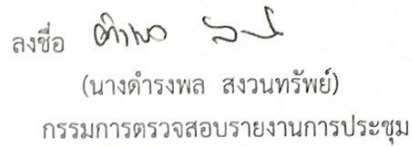 ลงชื่อ
(นางดำรงพล สงวนทรัพย์)
กรรมการตรวจสอบรายงานการประชุม